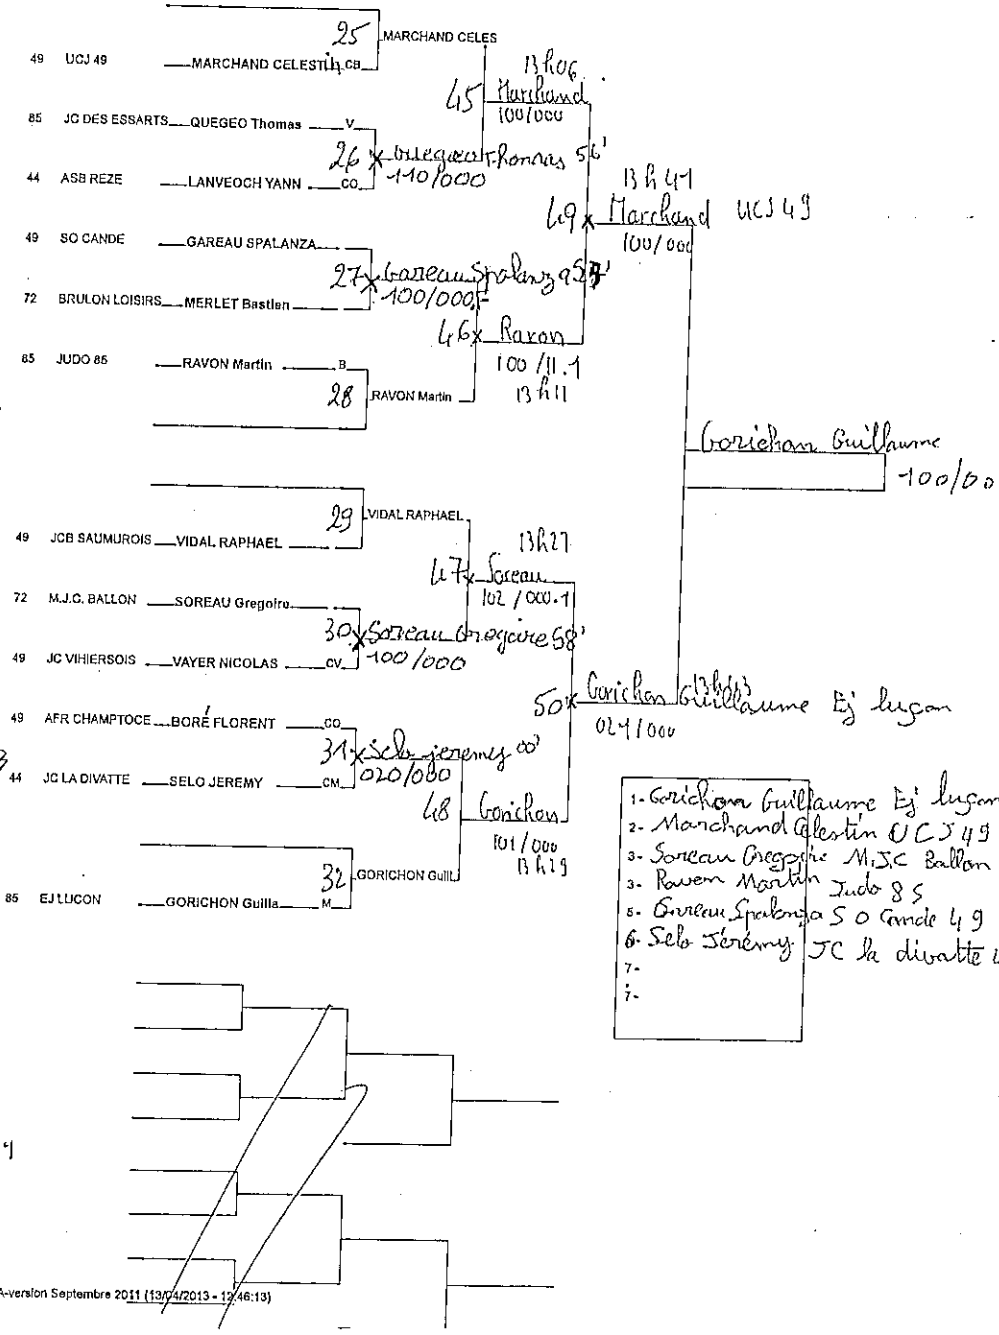 25 MARCHAND CELES
49 UCJ 49 MARCHAND CELESTIN CB
13h06
45 Marchand
100/000
85 JC DES ESSARTS QUEGEO Thomas V
26 x Quegeo Thomas 56'
110/000
44 ASB REZE LANVEOCH YANN CO
13h41
49 x Marchand UCJ 49
100/000
49 SO CANDE GAREAU SPALANZA
27 x Gareau Spalanza
100/000
72 BRULON LOISIRS MERLET Bastien
46 x Ravon
100/11.1
13h11
85 JUDO 85 RAVON Martin B
28 RAVON Martin
Gorichon Guillaume
100/00
29 VIDAL RAPHAEL
49 JCB SAUMUROIS VIDAL RAPHAEL
13h27
47 x Soreau
102/000.1
72 M.J.C. BALLON SOREAU Gregoire
30 x Soreau Gregoire 58'
100/000
49 JC VIHIERSOIS VAYER NICOLAS CV
50 x Gorichon Guillaume Ej luçon
021/000
49 AFR CHAMPTOCE BORÉ FLORENT CO
31 x Selo jeremy 00'
020/000
44 JC LA DIVATTE SELO JEREMY CM
48 Gorichon
101/000
13h29
32 GORICHON Guill
85 EJ LUCON GORICHON Guilla M
1- Gorichon Guillaume Ej luçon
2- Marchand Celestin UCJ 49
3- Soreau Gregoire MJC Ballon
3- Raven Martin Judo 85
5- Gareau Spalanza SO Cande 49
6- Selo Jérémy JC la divatte
7-
7-
A-version Septembre 2011 (13/04/2013 - 12:46:13)